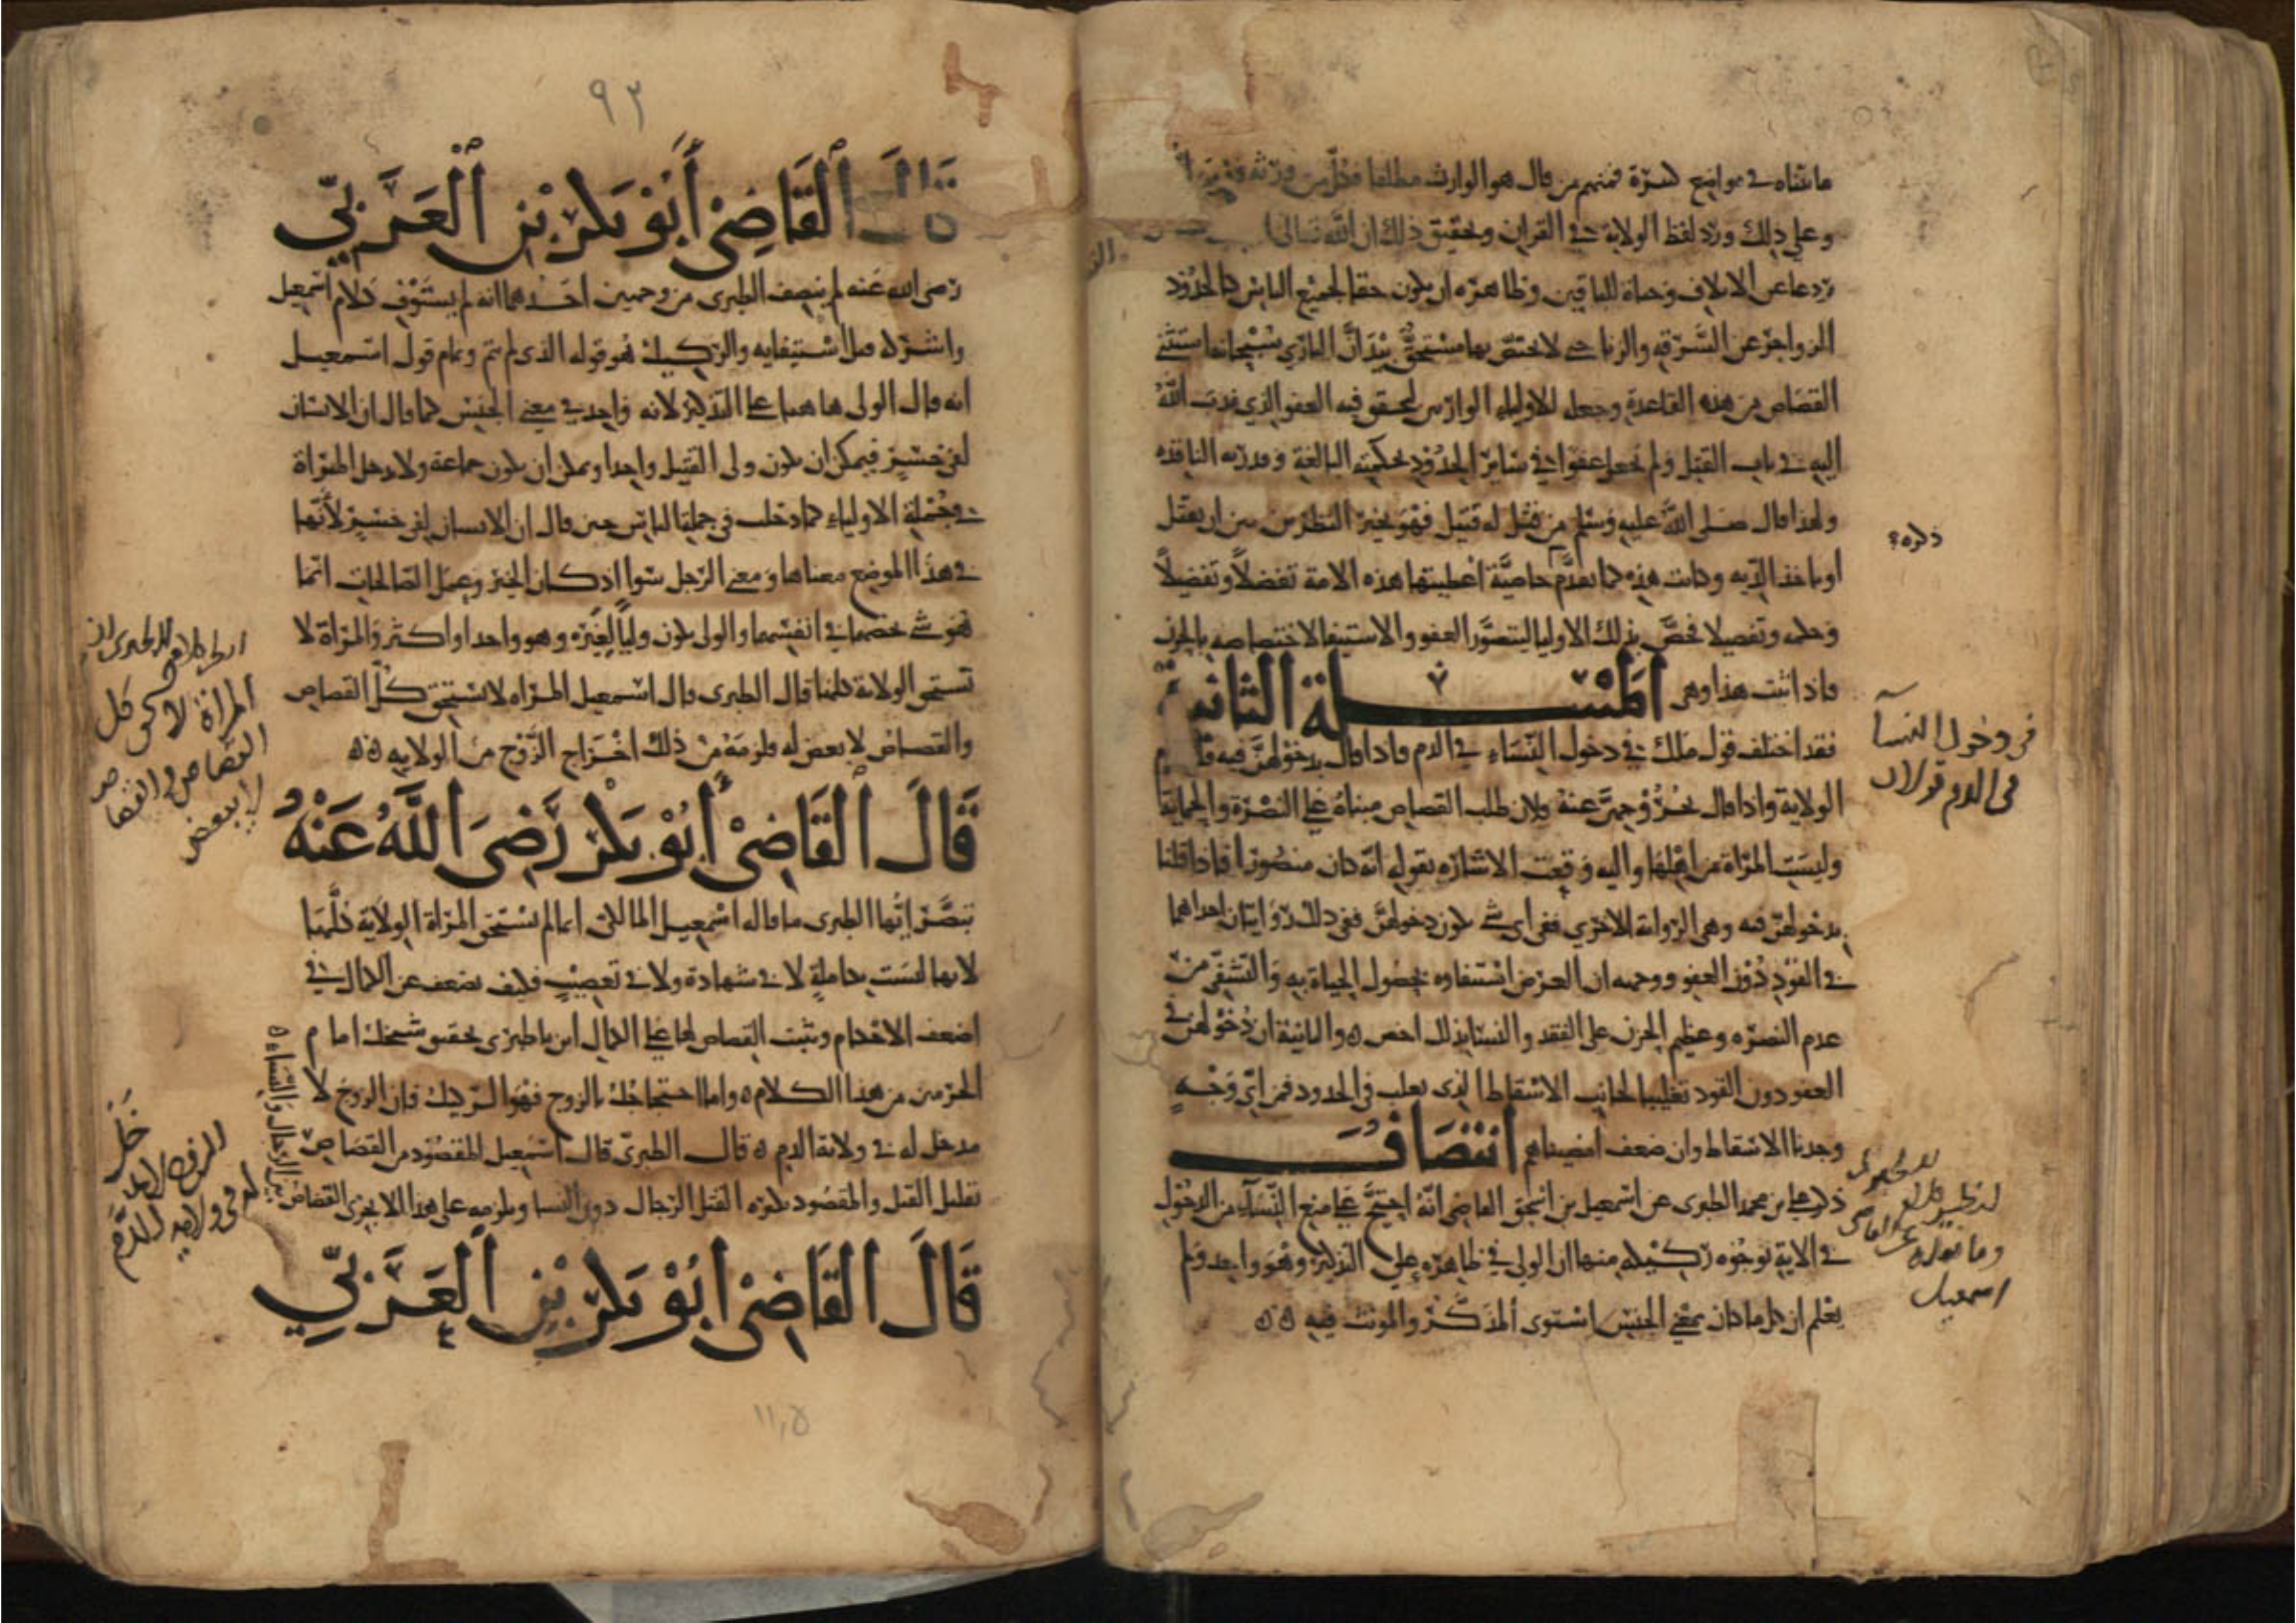 ما بيناه في مواضع كثيرة فمنهم من قال هو الوارث مطلقا فكل من ورثه فهو
وعلى ذلك ورد لفظ الولاية في القران وتحقيق ذلك ان الله تعالى
ردعا عن الاتلاف وحياة للباقين وظاهره ان يكون حقا لجميع الناس كالحدود
الزواجر عن السرقه والزنا حتى لا يختص بها مستحق بيد ان الباري سبحانه استثنى
القصاص من هذه القاعدة وجعله للاولياء الوارثين ليتحقق فيه العفو الذي ندب الله
اليه في باب القتل ولم يجعل عفوا في سائر الحدود لحكمته البالغة وقدرته النافذه
ولهذا قال صلى الله عليه وسلم من قتل له قتيل فهو بخير النظرين بين ان يقتل
او ياخذ الديه وكانت هذه كما تقدم خاصية اعطيتها هذه الامة تفضلا وتفضيلا
وحكمه وتفصيلا فخص بذلك الاوليا ليتصور العفو والاستيفا لاختصاصه بالحزن
فاذا ثبت هذا وهي المسلة الثانية
فقد اختلف قول ملك في دخول النساء في الدم فاذا قال بدخولهن فيه
الولاية واذا قال بخروجهن عنه فلان طلب القصاص مبناه على النصرة والحماية
وليست المراة من اهلها واليه وقعت الاشاره بقوله انه كان منصورا فاذا قلنا
بدخولهن فيه وهي الرواية الاخري ففي اي شي يكون دخولهن ففي ذلك روايتان احداهما
في القود دون العفو ووجهه ان الغرض استيفاوه لحصول الحياة به والتشفي من
عدم النصره وعظيم الحزن على الفقد والنسا بذلك اخص ه والثانية ان دخولهن في
العفو دون القود تغليبا لجانب الاسقاط الذي يغلب في الحدود فمن اي وجه
وجدنا الاسقاط وان ضعف امضيناه انتصاف
ذكر علي بن محمد الطبري عن اسمعيل بن اسحق القاضي انه احتج على منع النساء من الدخول
في الاية بوجوه ركيكه منها ان الولي في ظاهره على التذكير وهو واحد ولم
يعلم ان كل ما كان بمعنى الجنس استوى المذكر والمونث فيه ه ه
ذكره؟
في دخول النسآ
في الدم قولان
اسمعيل
٩٢
قال القاضي أبو بكر بن العربي
رضي الله عنه لم ينصف الطبري من وجهين احدهما انه لم يستوف كلام اسمعيل
واستركه قبل استيفايه والركيك هو قوله الذي لم يتم وتمام قول اسمعيل
انه قال الولي هاهنا على التذكير لانه واحد في معنى الجنس كما قال ان الانسان
لفي خسر فيمكن ان يكون ولي القتيل واحدا ويمكن ان يكون جماعة ولا يدخل المراة
في جملة الاولياء كما دخلت في جملة الناس حين قال ان الانسان لفي خسر لانها
في هذا الموضع معناها ومعنى الرجل سوا اذ كان الخير وعمل الصالحات انما
هو شي خصهما في انفسهما والولي يكون وليا لغيره وهو واحد او اكثر والمراة لا
تستحق الولاية كلها قال الطبري قال اسمعيل المراه لا تستحق كل القصاص
والقصاص لا بعض له فلزمه من ذلك اخراج الزوج من الولايه ه ه
قال القاضي أبو بكر رضي الله عنه
تبصر ايها الطبري ما قاله اسمعيل المالكي انما لم تستحق المراة الولاية كلها
لانها ليست بكاملة لا في شهادة ولا في تعصيب فكيف تضعف عن الكمال في
اضعف الاحكام ويثبت القصاص لها على الكمال اين يا طبري تحقيق شيخك امام
الحرمين من هذا الكلام ه واما احتجاجك بالزوج فهو الركيك فان الزوج لا
مدخل له في ولاية الدم ه قال الطبري قال اسمعيل المقصود من القصاص
تقليل القتل والمقصود بكثره القتل الرجال دون النسا ويلزمه على هذا الا يجري القصاص
بين الرجال والنساء ه
قال القاضي ابو بكر بن العربي
المراة لا تستحق كل
القصاص والقصاص
لا يبعض
١١٫٥